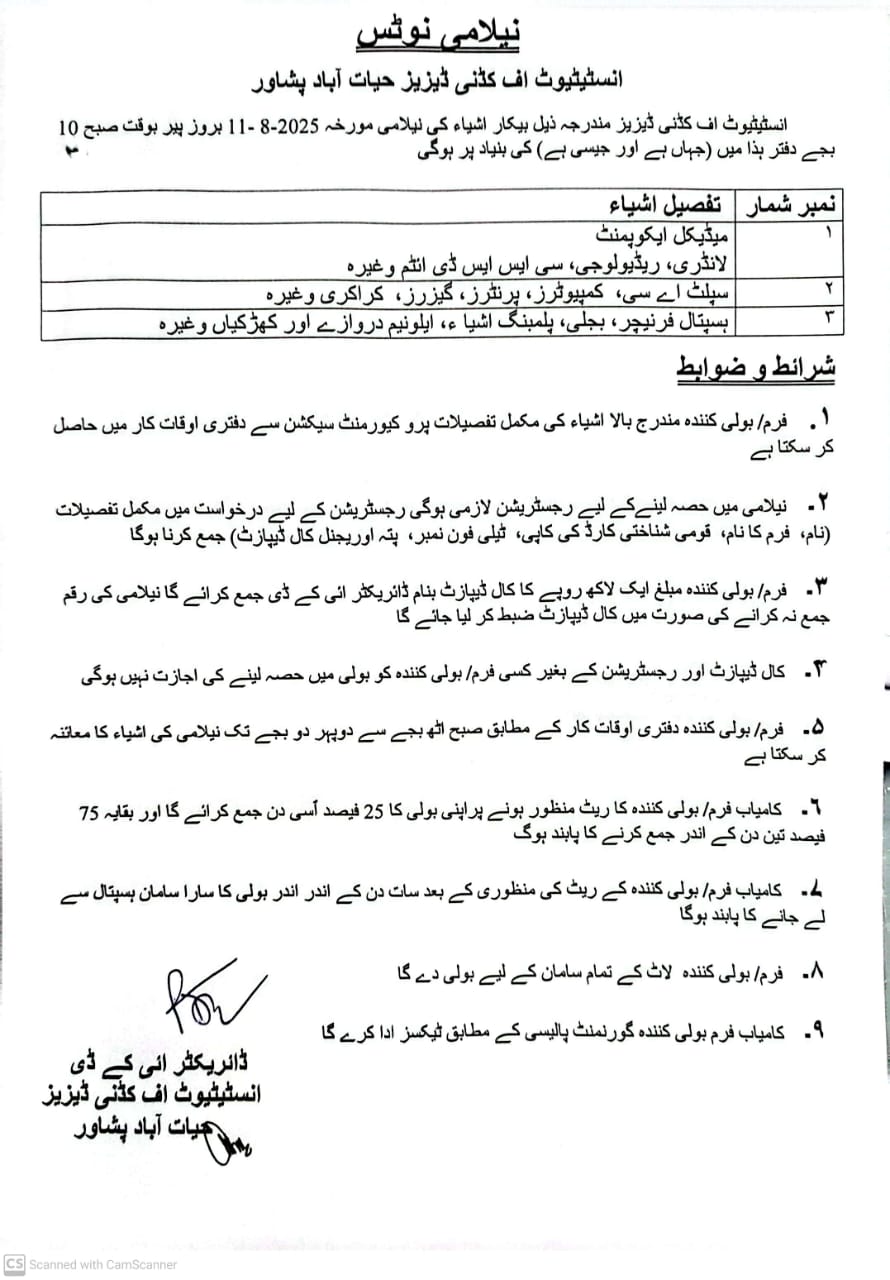 نیلامی نوٹس
انسٹیٹیوٹ اف کڈنی ڈیزیز حیات آباد پشاور
انسٹیٹیوٹ اف کڈنی ڈیزیز مندرجہ ذیل بیکار اشیاء کی نیلامی مورخہ 2025-8-11 بروز پیر بوقت صبح 10
بجے دفتر ہذا میں (جہاں ہے اور جیسی ہے) کی بنیاد پر ہوگی
نمبر شمار تفصیل اشیاء
۱ میڈیکل ایکوپمنٹ
لانڈری، ریڈیولوجی، سی ایس ایس ڈی ائٹم وغیرہ
۲ سپلٹ اے سی، کمپیوٹرز، پرنٹرز، گیزرز، کراکری وغیرہ
۳ ہسپتال فرنیچر، بجلی، پلمبنگ اشیا ء، ایلونیم دروازے اور کھڑکیاں وغیرہ
شرائط و ضوابط
۱. فرم/ بولی کنندہ مندرج بالا اشیاء کی مکمل تفصیلات پرو کیورمنٹ سیکشن سے دفتری اوقات کار میں حاصل
کر سکتا ہے
۲. نیلامی میں حصہ لینےکے لیے رجسٹریشن لازمی ہوگی رجسٹریشن کے لیے درخواست میں مکمل تفصیلات
(نام، فرم کا نام، قومی شناختی کارڈ کی کاپی، ٹیلی فون نمبر، پتہ اوریجنل کال ڈیپازٹ) جمع کرنا ہوگا
۳. فرم/ بولی کنندہ مبلغ ایک لاکھ روپے کا کال ڈیپازٹ بنام ڈائریکٹر ائی کے ڈی جمع کرائے گا نیلامی کی رقم
جمع نہ کرانے کی صورت میں کال ڈیپازٹ ضبط کر لیا جائے گا
۴. کال ڈیپازٹ اور رجسٹریشن کے بغیر کسی فرم/ بولی کنندہ کو بولی میں حصہ لینے کی اجازت نہیں ہوگی
۵. فرم/ بولی کنندہ دفتری اوقات کار کے مطابق صبح اٹھ بجے سے دوپہر دو بجے تک نیلامی کی اشیاء کا معائنہ
کر سکتا ہے
۶. کامیاب فرم/ بولی کنندہ کا ریٹ منظور ہونے پراپنی بولی کا 25 فیصد اُسی دن جمع کرائے گا اور بقایہ 75
فیصد تین دن کے اندر جمع کرنے کا پابند ہوگ
۷. کامیاب فرم/ بولی کنندہ کے ریٹ کی منظوری کے بعد سات دن کے اندر اندر بولی کا سارا سامان ہسپتال سے
لے جانے کا پابند ہوگا
۸. فرم/ بولی کنندہ لاٹ کے تمام سامان کے لیے بولی دے گا
۹. کامیاب فرم بولی کنندہ گورنمنٹ پالیسی کے مطابق ٹیکسز ادا کرے گا
ڈائریکٹر ائی کے ڈی
انسٹیٹیوٹ اف کڈنی ڈیزیز
حیات آباد پشاور
CS Scanned with CamScanner